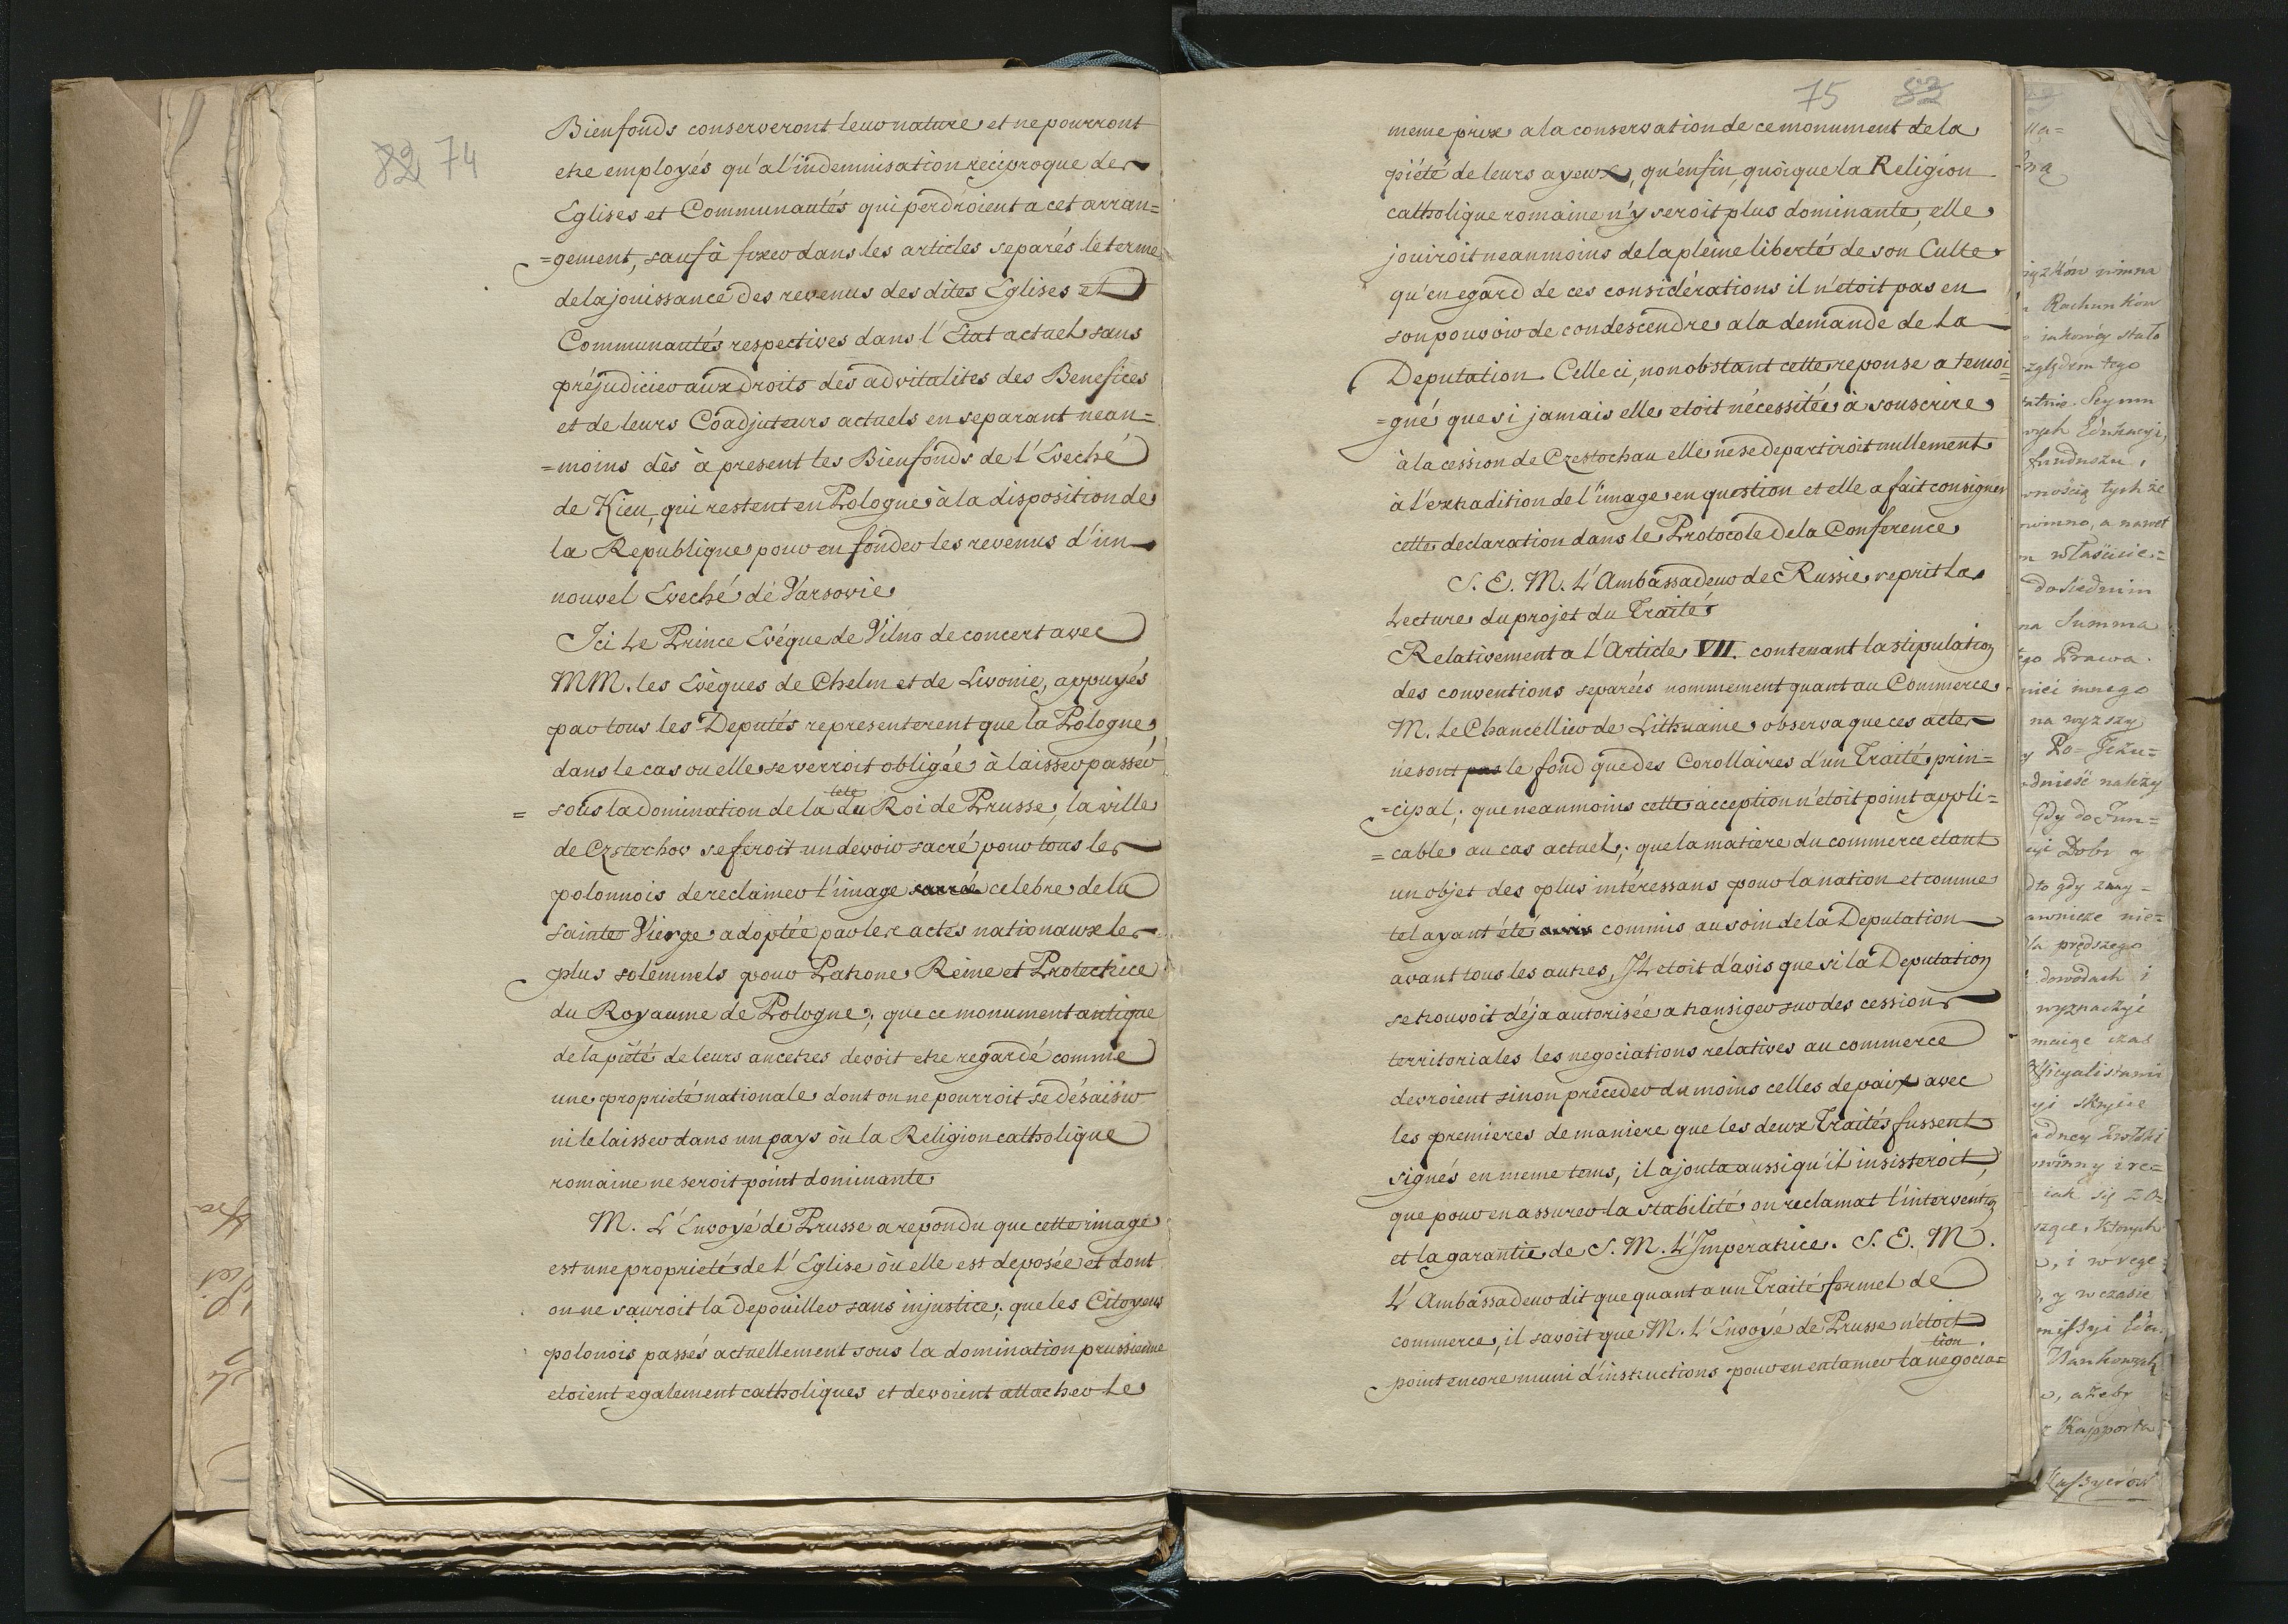 82 74
Bienfonds conserveront leur nature et ne pourront
etre employés qu'a l'indemnisation reciproque des
Eglises et Communautés qui perdroient a cet arran=
=gement, sauf à fixer dans les articles separés le terme
de la jouissance des revenus des dites Eglises et
Communautés respectives dans l'Etat actuel sans
préjudicier aux droits des advitalites des Benefices
et de leurs Coadjuteurs actuels en separant nean=
=moins dès à present les Bienfonds de l'Eveché
de Kieu, qui restent en Pologne à la disposition de
la Republique pour en fonder les revenus d'un
nouvel Eveché de Varsovie
Ici Le Prince Evêque de Vilna de concert avec
MM. les Evêques de Chelm et de Livonie, appuyés
par tous les Deputés representerent que la Pologne,
dans le cas ou elle se verroit obligée à laisser passer
= sous la domination de la du Roi de Prusse, la ville
de Czstechov se feroit un devoir sacré pour tous les
polonnois de reclamer l'image sacrée celebre de la
sainte Vierge adoptée par les actes nationaux les
plus solemnels pour Patrone Reine et Protectrice
du Royaume de Pologne; que ce monument antique
de la piété de leurs ancetres devoit etre regardé comme
une proprieté nationale dont on ne pourroit se désaisir
ni le laisser dans un pays où la Religion catholique
romaine ne seroit point dominante
M. L'Envoyé de Prusse a repondu que cette image
est une proprieté de l'Eglise où elle est deposée et dont
on ne sauroit la depouiller sans injustice; que les Citoyens
polonois passés actuellement sous la domination prussienne
etoient egalement catholiques et devoient attacher le
75 83
meme prix a la conservation de ce monument de la
piété de leurs ayeux, qu'enfin, quoique la Religion
catholique romaine n'y seroit plus dominante, elle
jouiroit neanmoins de la pleine liberté de son Culte
qu'en egard de ces considérations il n'etoit pas en
son pouvoir de condescendre a la demande de la
Deputation. Celle ci, nonobstant cette reponse a temoi=
=gné que si jamais elle etoit nécessitée à souscrire
à la cession de Czestochau elle ne se departiroit nullement
à l'extradition de l'image en question et elle a fait consigner
cette declaration dans le Protocole de la Conference
S. E. M. L'Ambassadeur de Russie reprit la
Lecture du projet du Traité
Relativement a l'Article VII. contenant la stipulation
des conventions separées nommement quant au Commerce
M. Le Chancellier de Lithuanie observa que ces actes
ne sont pas le fond que des Corollaires d'un Traité prin=
=cipal; que neanmoins cette acception n'etoit point appli=
=cable au cas actuel; que la matiere du commerce etant
un objet des plus intéressans pour la nation et comme
tel ayant été commis au soin de la Deputation
avant tous les autres, Il etoit d'avis que si la Deputation
se trouvoit déja autorisée a transiger sur des cessions
territoriales les negociations relatives au commerce
devroient sinon préceder du moins celles de paix avec
les premieres de maniere que les deux Traités fussent
signés en meme tems, il ajouta aussi qu'il insisteroit,
que pour en assurer la stabilité on reclamat l'intervention
et la garantie de S. M. L'Imperatrice. S. E. M.
L'Ambassadeur dit que quant a un Traité formel de
commerce, il savoit que M. L'Envoyé de Prusse n'etoit
point encore muni d'instructions pour en entamer la negocia=
tion.
Rachunków
zględem tego
Seym
funduszu,
na Summa
Prawa.
innego
na wyzszy
należy
Gdy do Fun=
Dobr
prędszego
dowodach i
wyznaczyć
czas
ktorych
w czasie
ażeby
Rapporta